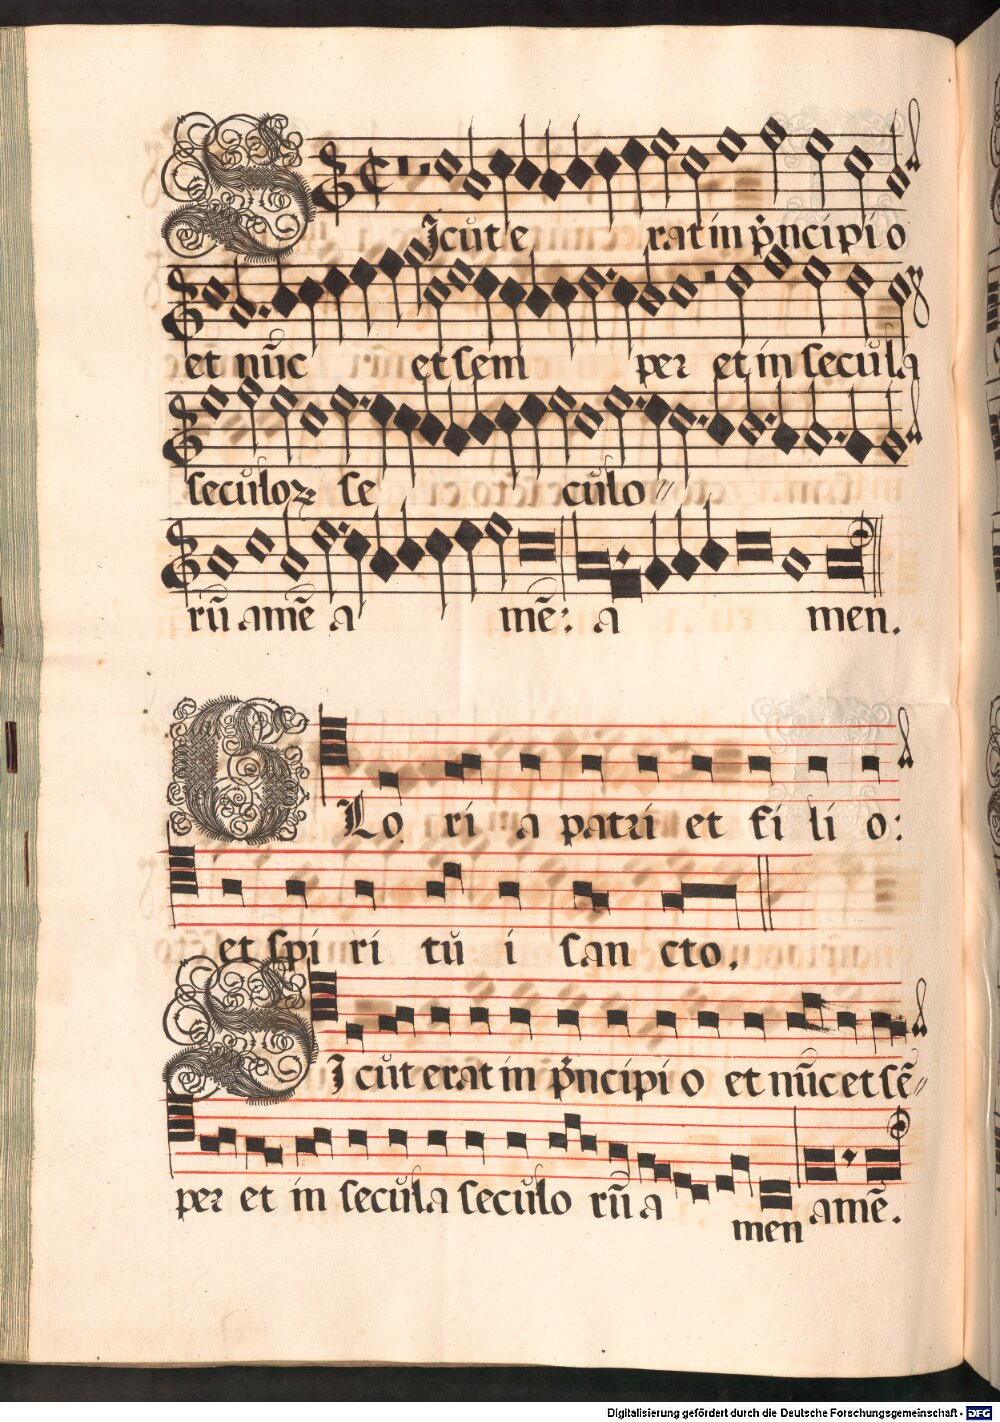 SIcut e rat in p̄ncipi o
et nūc et sem per et in secula
seculoꝝ se culo //
rū amē a mē: a men.
GLo ri a patri et fi li o:
et spi ri tu i san cto.
SIcut erat in p̄ncipi o et nūc et sē //
per et in secula seculo rū a men amē.
Digitalisierung gefördert durch die Deutsche Forschungsgemeinschaft - DFG